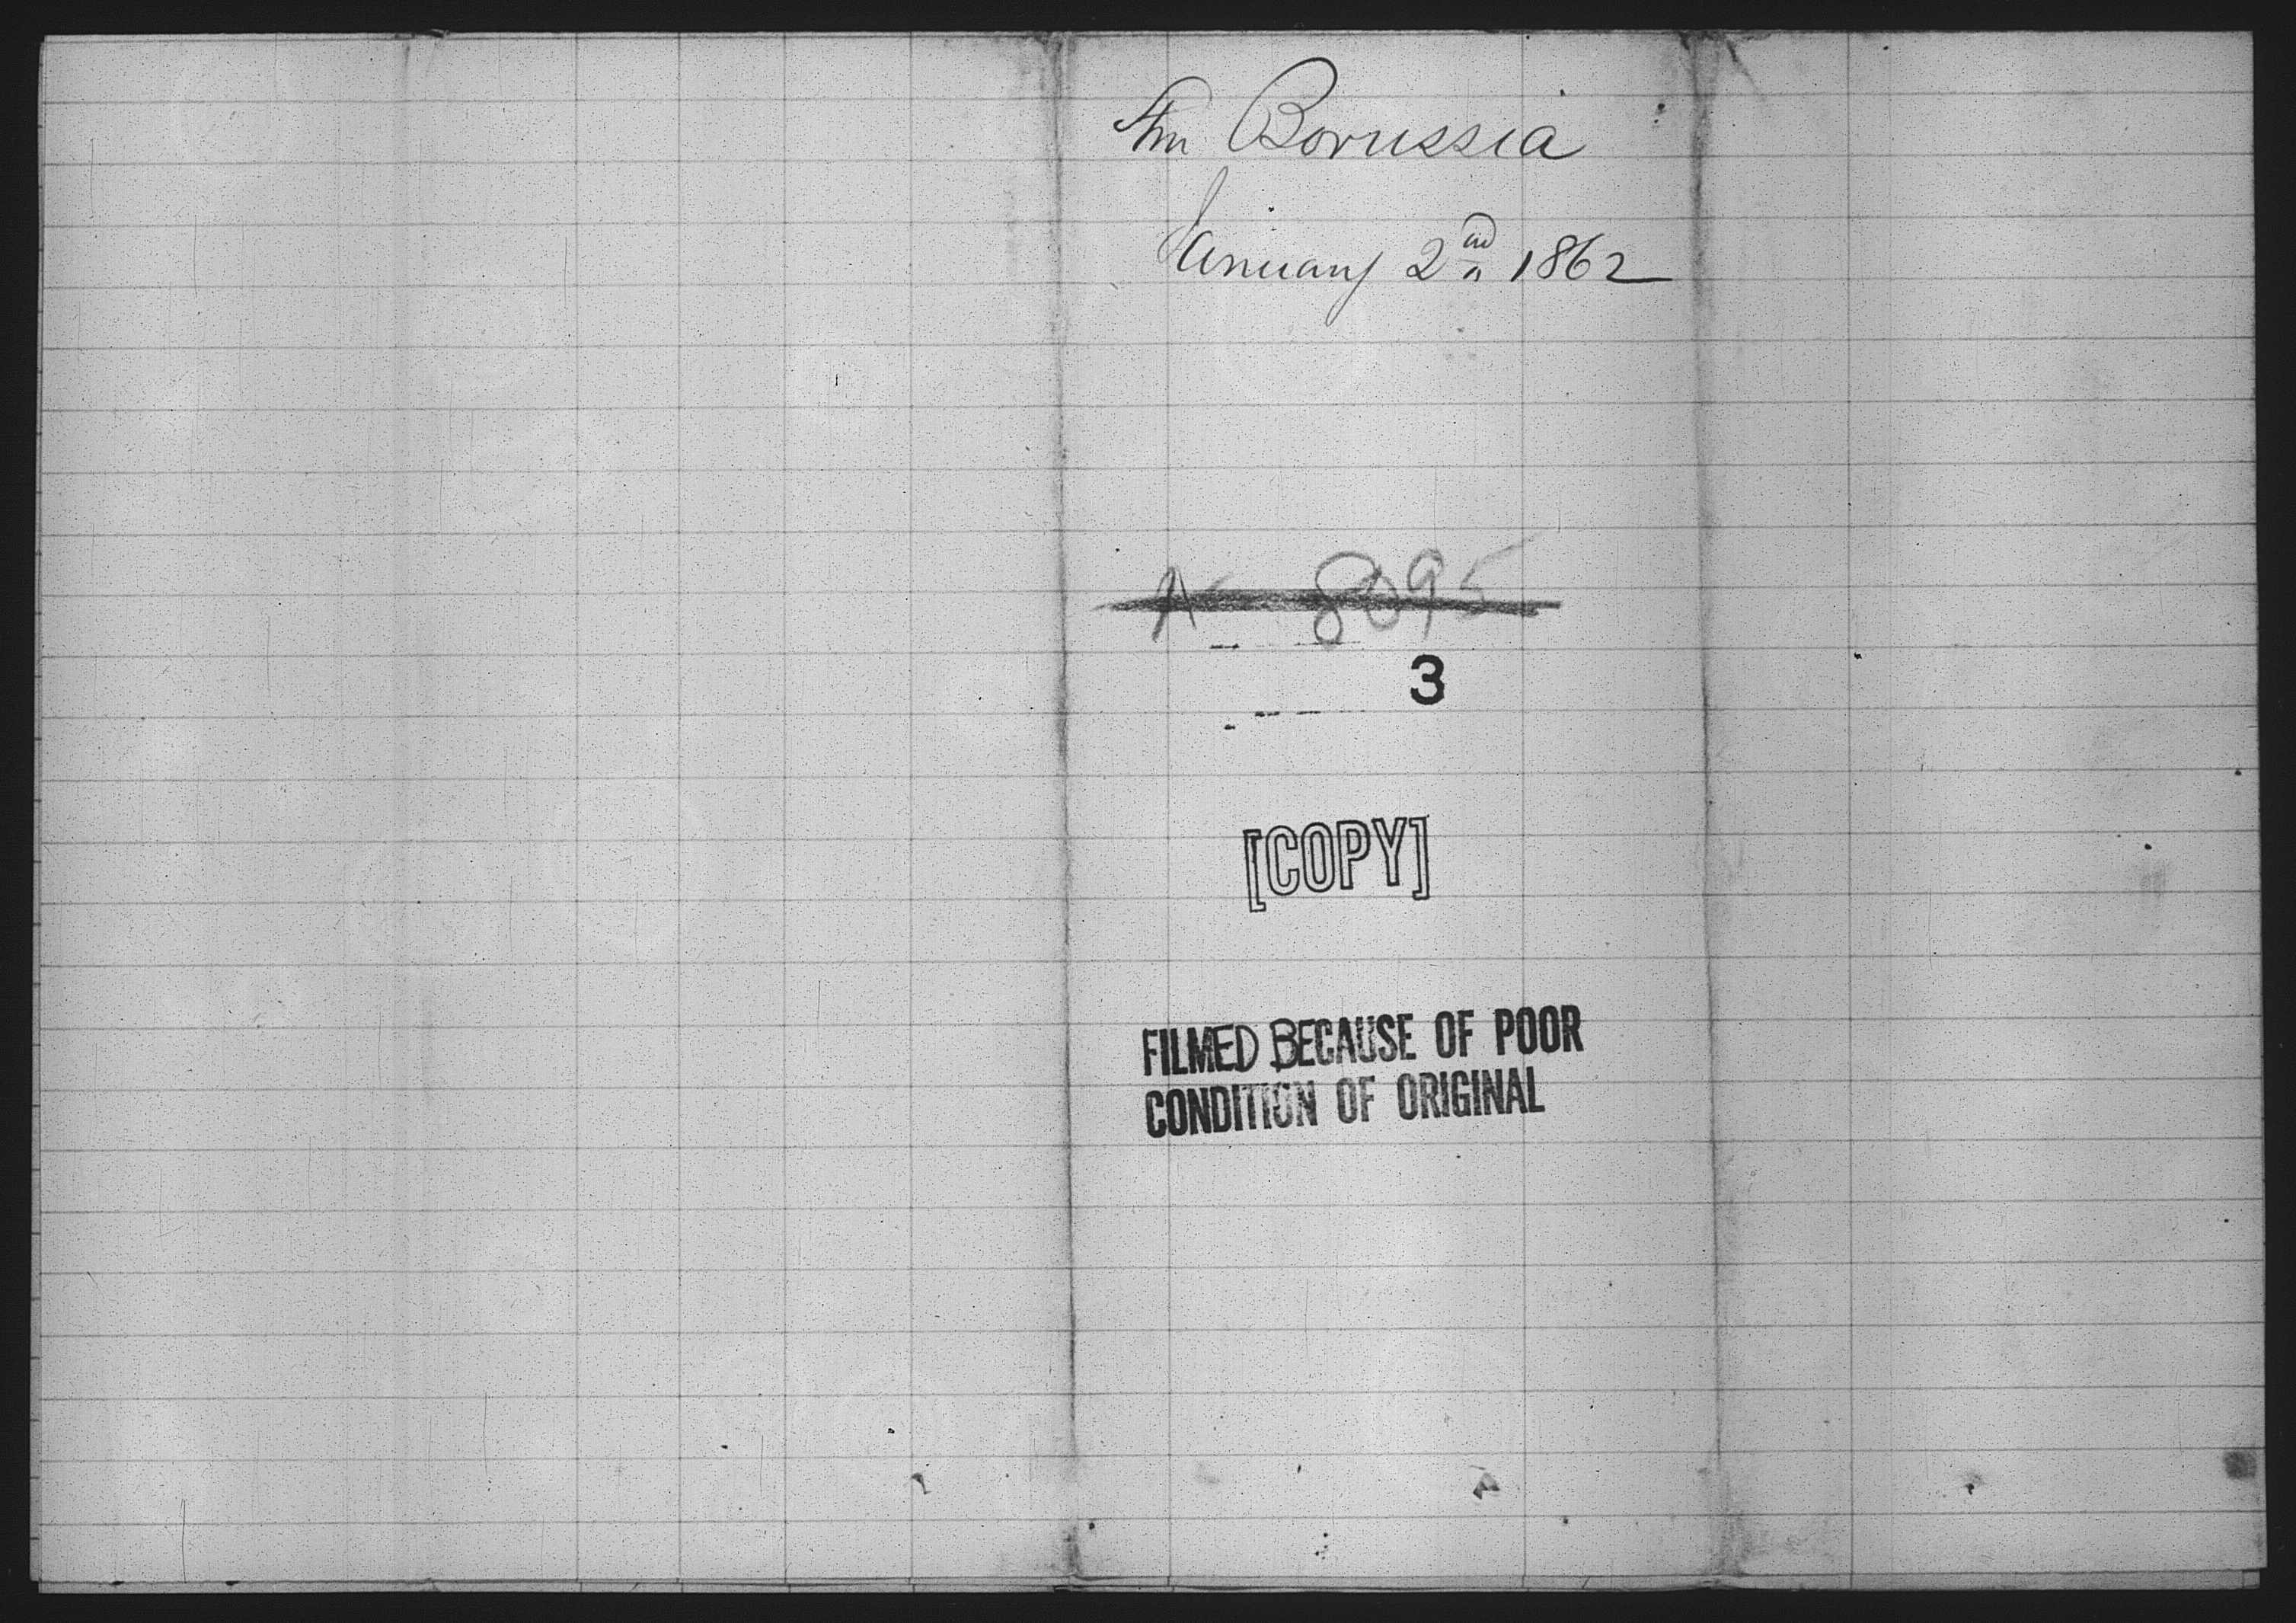 Stm Borussia
January 2nd 1862
A 8095
3
[COPY]
FILMED BECAUSE OF POOR
CONDITION OF ORIGINAL